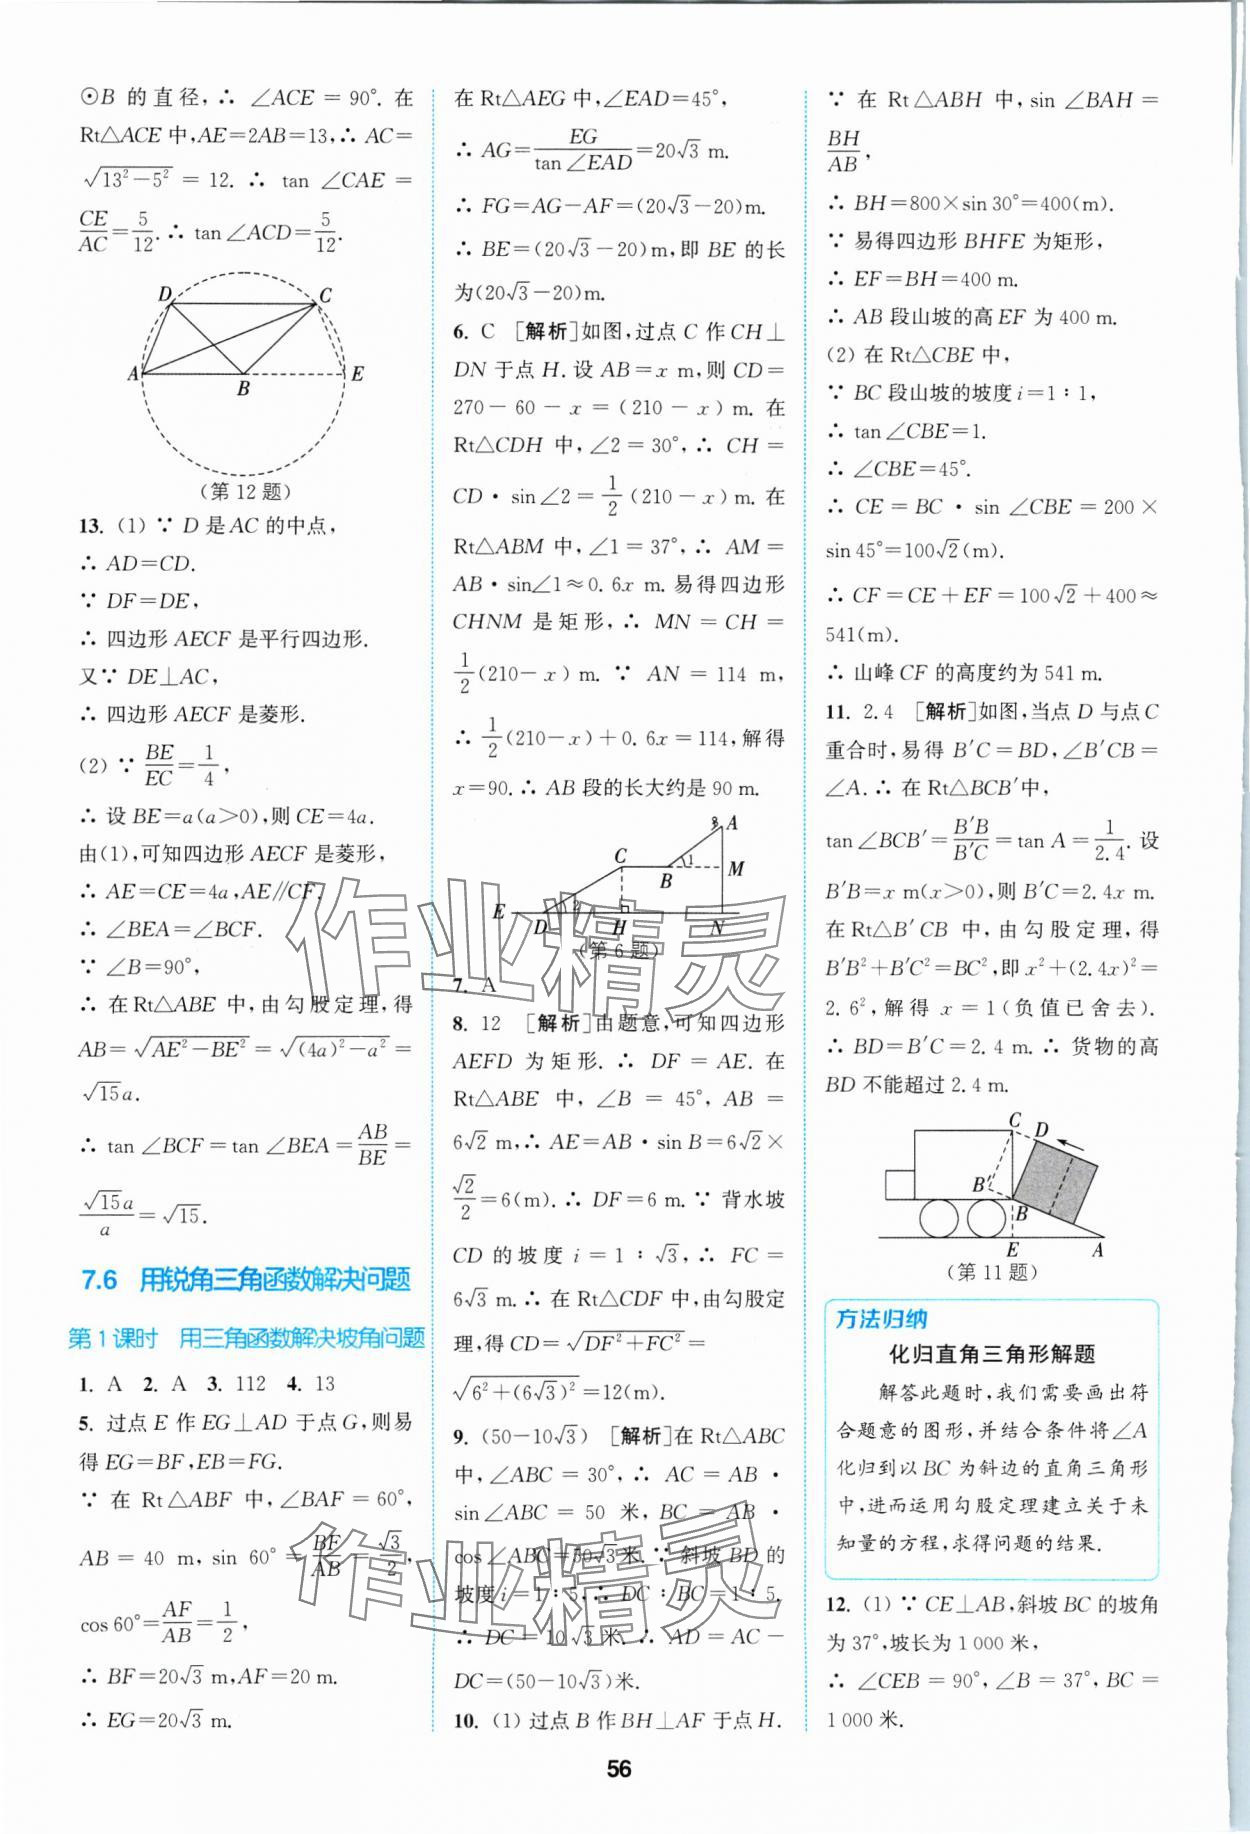 ⊙B 的直径,∴ ∠ACE = 90°. 在
Rt△ACE 中,AE=2AB=13,∴ AC=
√(13²-5²) = 12. ∴ tan ∠CAE =
CE/AC=5/12. ∴ tan∠ACD=5/12.
D
C
A
B
E
(第 12 题)
13. (1) ∵ D 是 AC 的中点,
∴ AD=CD.
∵ DF=DE,
∴ 四边形 AECF 是平行四边形.
又∵ DE⊥AC,
∴ 四边形 AECF 是菱形.
(2) ∵ BE/EC=1/4,
∴ 设 BE=a(a>0),则 CE=4a.
由(1),可知四边形 AECF 是菱形,
∴ AE=CE=4a,AE∥CF.
∴ ∠BEA=∠BCF.
∵ ∠B=90°,
∴ 在 Rt△ABE 中,由勾股定理,得
AB=√(AE²-BE²)=√((4a)²-a²)=
√15a.
∴ tan∠BCF=tan∠BEA=AB/BE=
√15a/a=√15.
7.6 用锐角三角函数解决问题
第 1 课时 用三角函数解决坡角问题
1. A 2. A 3. 112 4. 13
5. 过点 E 作 EG⊥AD 于点 G,则易
得 EG=BF,EB=FG.
∵ 在 Rt△ABF 中,∠BAF=60°,
AB = 40 m, sin 60° = BF/AB = √3/2,
cos 60°=AF/AB=1/2,
∴ BF=20√3 m,AF=20 m.
∴ EG=20√3 m.
在 Rt△AEG 中,∠EAD=45°,
∴ AG=EG/tan∠EAD=20√3 m.
∴ FG=AG-AF=(20√3-20)m.
∴ BE=(20√3-20)m,即 BE 的长
为(20√3-20)m.
6. C [解析]如图,过点 C 作 CH⊥
DN 于点 H. 设 AB=x m,则 CD=
270-60-x=(210-x)m. 在
Rt△CDH 中,∠2=30°,∴ CH=
CD·sin∠2=1/2(210-x)m. 在
Rt△ABM 中,∠1=37°,∴ AM=
AB·sin∠1≈0.6x m. 易得四边形
CHNM 是矩形,∴ MN=CH=
1/2(210-x)m. ∵ AN=114 m,
∴ 1/2(210-x)+0.6x=114,解得
x=90. ∴ AB 段的长大约是 90 m.
A
C
1
B
M
E
2
D
H
N
(第 6 题)
7. A
8. 12 [解析]由题意,可知四边形
AEFD 为矩形. ∴ DF=AE. 在
Rt△ABE 中,∠B=45°,AB=
6√2 m,∴ AE=AB·sin B=6√2×
√2/2=6(m). ∴ DF=6 m. ∵ 背水坡
CD 的坡度 i=1∶√3,∴ FC=
6√3 m. ∴ 在 Rt△CDF 中,由勾股定
理,得 CD=√(DF²+FC²)=
√(6²+(6√3)²)=12(m).
9. (50-10√3) [解析]在 Rt△ABC
中,∠ABC=30°,∴ AC=AB·
sin∠ABC=50 米,BC=AB·
cos∠ABC=50√3米. ∵ 斜坡 BD 的
坡度 i=1∶5,∴ DC∶BC=1∶5.
∴ DC=10√3 米. ∴ AD=AC-
DC=(50-10√3)米.
10. (1) 过点 B 作 BH⊥AF 于点 H.
∵ 在 Rt△ABH 中, sin∠BAH=
BH/AB,
∴ BH=800×sin 30°=400(m).
∵ 易得四边形 BHFE 为矩形,
∴ EF=BH=400 m.
∴ AB 段山坡的高 EF 为 400 m.
(2) 在 Rt△CBE 中,
∵ BC 段山坡的坡度 i=1∶1,
∴ tan∠CBE=1.
∴ ∠CBE=45°.
∴ CE=BC·sin∠CBE=200×
sin 45°=100√2(m).
∴ CF=CE+EF=100√2+400≈
541(m).
∴ 山峰 CF 的高度约为 541 m.
11. 2.4 [解析]如图,当点 D 与点 C
重合时,易得 B′C=BD,∠B′CB=
∠A. ∴ 在 Rt△BCB′中,
tan∠BCB′=B′B/B′C=tan A=1/2.4. 设
B′B=x m(x>0),则 B′C=2.4x m.
在 Rt△B′CB 中,由勾股定理,得
B′B²+B′C²=BC²,即 x²+(2.4x)²=
2.6²,解得 x=1(负值已舍去).
∴ BD=B′C=2.4 m. ∴ 货物的高
BD 不能超过 2.4 m.
C
D
B′
B
E
A
(第 11 题)
方法归纳
化归直角三角形解题
解答此题时,我们需要画出符
合题意的图形,并结合条件将∠A
化归到以 BC 为斜边的直角三角形
中,进而运用勾股定理建立关于未
知量的方程,求得问题的结果.
12. (1) ∵ CE⊥AB,斜坡 BC 的坡角
为 37°,坡长为 1 000 米,
∴ ∠CEB=90°,∠B=37°,BC=
1 000 米.
56
作业精灵
作业精灵